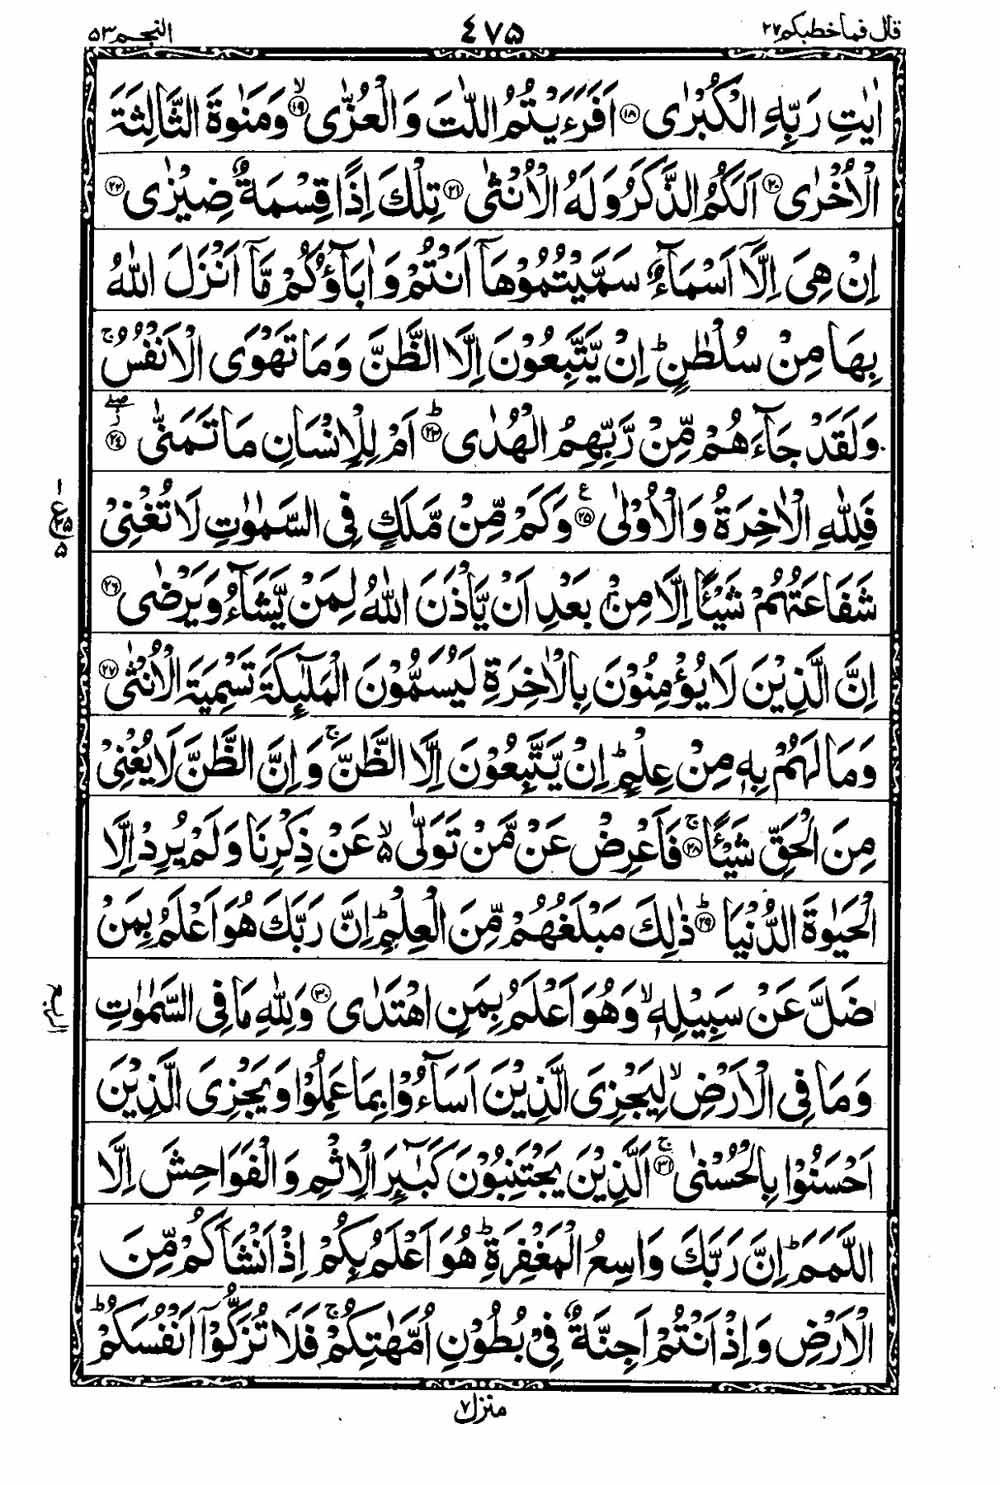 قال فما خطبكم ۲۷ ۴۷۵ النجم ۵۳
اٰيٰتِ رَبِّهِ الْكُبْرٰى ﴿۱۸﴾ اَفَرَءَيْتُمُ اللّٰتَ وَالْعُزّٰى ۙ﴿۱۹﴾ وَمَنٰوةَ الثَّالِثَةَ
الْاُخْرٰى ﴿۲۰﴾ اَلَكُمُ الذَّكَرُ وَلَهُ الْاُنْثٰى ﴿۲۱﴾ تِلْكَ اِذًا قِسْمَةٌ ضِيْزٰى ﴿۲۲﴾
اِنْ هِىَ اِلَّاۤ اَسْمَآءٌ سَمَّيْتُمُوْهَاۤ اَنْتُمْ وَاٰبَآؤُكُمْ مَّاۤ اَنْزَلَ اللّٰهُ
بِهَا مِنْ سُلْطٰنٍ ؕ اِنْ يَّتَّبِعُوْنَ اِلَّا الظَّنَّ وَمَا تَهْوَى الْاَنْفُسُ ۚ
وَلَقَدْ جَآءَهُمْ مِّنْ رَّبِّهِمُ الْهُدٰى ؕ﴿۲۳﴾ اَمْ لِلْاِنْسَانِ مَا تَمَنّٰى ﴿۲۴﴾
فَلِلّٰهِ الْاٰخِرَةُ وَالْاُوْلٰى ﴿۲۵﴾ وَكَمْ مِّنْ مَّلَكٍ فِى السَّمٰوٰتِ لَا تُغْنِىْ
شَفَاعَتُهُمْ شَيْـًٔا اِلَّا مِنْۢ بَعْدِ اَنْ يَّاْذَنَ اللّٰهُ لِمَنْ يَّشَآءُ وَيَرْضٰى ﴿۲۶﴾
اِنَّ الَّذِيْنَ لَا يُؤْمِنُوْنَ بِالْاٰخِرَةِ لَيُسَمُّوْنَ الْمَلٰٓئِكَةَ تَسْمِيَةَ الْاُنْثٰى ﴿۲۷﴾
وَمَا لَهُمْ بِهٖ مِنْ عِلْمٍ ؕ اِنْ يَّتَّبِعُوْنَ اِلَّا الظَّنَّ ۚ وَاِنَّ الظَّنَّ لَا يُغْنِىْ
مِنَ الْحَقِّ شَيْـًٔا ۚ﴿۲۸﴾ فَاَعْرِضْ عَنْ مَّنْ تَوَلّٰى ۙ۬ عَنْ ذِكْرِنَا وَلَمْ يُرِدْ اِلَّا
الْحَيٰوةَ الدُّنْيَا ؕ﴿۲۹﴾ ذٰلِكَ مَبْلَغُهُمْ مِّنَ الْعِلْمِ ؕ اِنَّ رَبَّكَ هُوَ اَعْلَمُ بِمَنْ
ضَلَّ عَنْ سَبِيْلِهٖ ۙ وَهُوَ اَعْلَمُ بِمَنِ اهْتَدٰى ﴿۳۰﴾ وَلِلّٰهِ مَا فِى السَّمٰوٰتِ
وَمَا فِى الْاَرْضِ ۙ لِيَجْزِىَ الَّذِيْنَ اَسَآءُوْا بِمَا عَمِلُوْا وَيَجْزِىَ الَّذِيْنَ
اَحْسَنُوْا بِالْحُسْنٰى ۚ﴿۳۱﴾ اَلَّذِيْنَ يَجْتَنِبُوْنَ كَبٰٓئِرَ الْاِثْمِ وَالْفَوَاحِشَ اِلَّا
اللَّمَمَ ؕ اِنَّ رَبَّكَ وَاسِعُ الْمَغْفِرَةِ ؕ هُوَ اَعْلَمُ بِكُمْ اِذْ اَنْشَاَكُمْ مِّنَ
الْاَرْضِ وَاِذْ اَنْتُمْ اَجِنَّةٌ فِىْ بُطُوْنِ اُمَّهٰتِكُمْ ۚ فَلَا تُزَكُّوْۤا اَنْفُسَكُمْ ؕ
منزل ۷
ع ۱ ۲۵ ۵
الربع